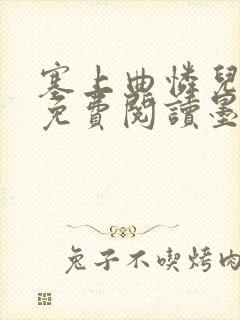 塞上曲憐兒
免費閱讀墨
兔子不喫烤肉